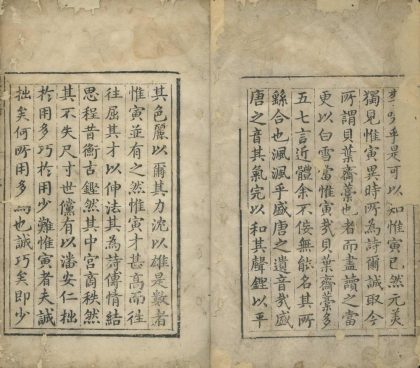 乎是可以知惟寅已然元美
獨見惟寅異時所為詩爾誠取今
所謂貝葉齋藁也者而盡讀之當
更以白雪當惟寅哉貝葉齋藁多
五七言近體余不佞無能名其所
繇合也渢渢乎盛唐之遺音哉盛
唐之音其氣完以和其聲鏗以平
其色麗以爾其力沈以雄是數者
惟寅並有之然惟寅才甚高而往
往屈其才以伸法其為詩傳情結
思程昔衡古鏗然其中宮商秩然
其不失尺寸世儻有以潘安仁拙
於用多巧於用少難惟寅者夫誠
拙矣何所用多而也誠巧矣即少